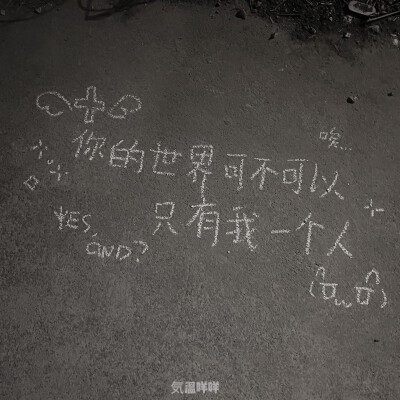 唉...
你的世界可不可以
只有我一个人
YES,
AND?
気温咩咩